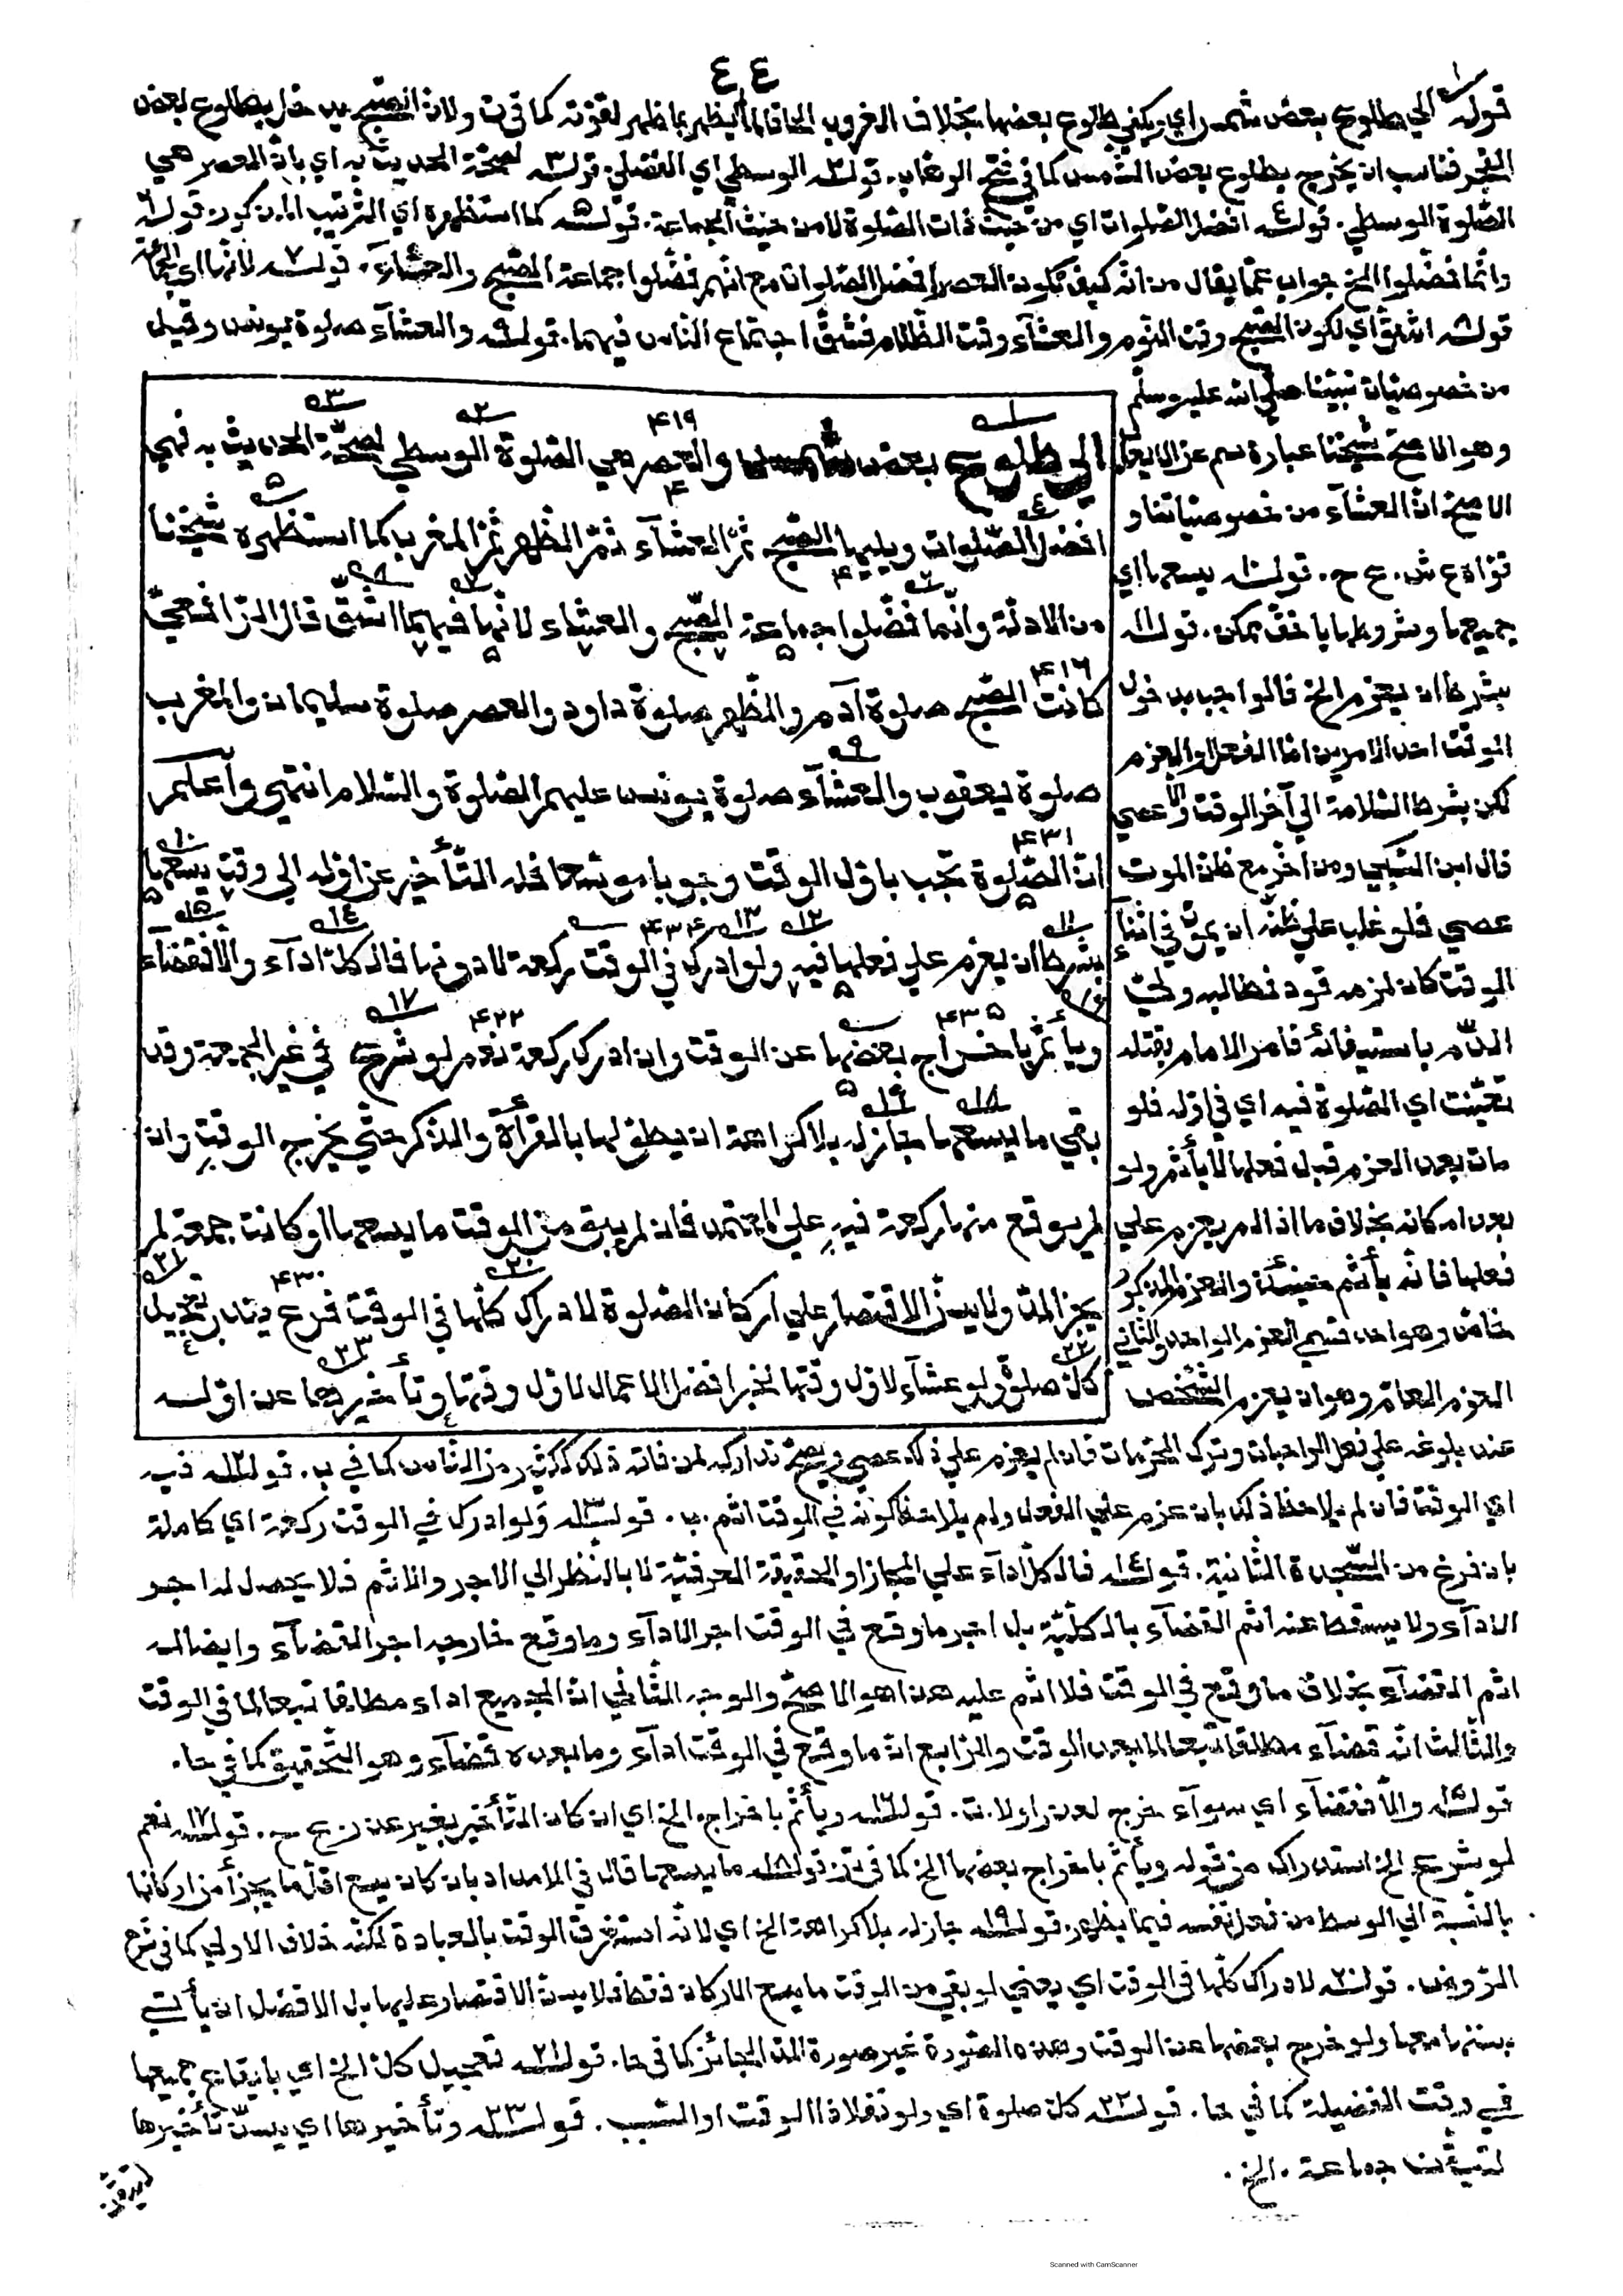 ٤٤
قوله الي طلوع بعض شمس اي ويكفي طلوع بعضها بخلاف الغروب الحاقا لما لم يظهر بما ظهر لقوته كما في ت ولان الصبح يدخل بطلوع بعض
الفجر فناسب ان يخرج بطلوع بعض الشمس كما في فتح الوهاب. قوله٢ الوسطي اي الفضلي. قوله٣ لصحة الحديث به اي بان العصر هي
الصلوة الوسطي. قوله٤ افضل الصلوات اي من حيث ذات الصلوة لا من حيث الجماعة. قوله٥ كما استظهره اي الترتيب المذكور. قوله٦
وانما فضلوا الخ جواب عما يقال من انه كيف تكون العصر افضل الصلوات مع انهم فضلوا جماعة الصبح والعشاء. قوله٧ لانها اي الجماعة
قوله٨ اشق اي لكون الصبح وقت النوم والعشاء وقت الظلام فشق اجتماع الناس فيهما. قوله٩ والعشآء صلوة يونس وقيل
من خصوصيات نبينا صلي الله عليه وسلم
وهو الاصح شيخنا عبارة سم عن الايعاب
الاصح ان العشآء من خصوصياتنا و
قواه ع ش. ع ح. قوله١٠ يسعها اي
جميعها وشروطها باخف ممكن. قوله١١
بشرط ان يعزم الخ فالواجب بدخول
الوقت احد الامرين اما الفعل او العزم
لكن بشرط السلامة الي آخر الوقت والا عصي
قال ابن السبكي ومن اخر مع ظن الموت
عصي فلو غلب علي ظنه ان يموت في اثنآء
الوقت كان لزمه قود فطالبه ولي
الدم باستيفائه فامر الامام بقتله
تعينت اي الصلوة فيه اي في اوله فلو
مات بعد العزم قبل فعلها لا يأثم ولو
بعد امكانه بخلاف ما اذا لم يعزم علي
فعلها فانه يأثم حينئذ والعزم المذكور
خاص وهو احد قسمي العزم الواحد والثاني
العزم العام وهو ان يعزم الشخص
الي طلوع بعض شمس والعصر هي الصلوة الوسطي لصحة الحديث به فهي
افضل الصلوات ويليها الصبح ثم العشآء ثم الظهر ثم المغرب كما استظهره شيخنا
من الادلة وانما فضلوا جماعة الصبح والعشاء لانها فيهما اشق قال الرافعي
كانت الصبح صلوة آدم والظهر صلوة داود والعصر صلوة سليمان والمغرب
صلوة يعقوب والعشآء صلوة يونس عليهم الصلوة والسلام انتهي وأعلم
ان الصلوة تجب باول الوقت وجوبا موسعا فله التأخير عن اوله الي وقت يسعها
بشرط ان يعزم علي فعلها فيه ولو ادرك في الوقت ركعة لا دونها فالكل ادآء والا فقضآء
ويأثم باخراج بعضها عن الوقت وان ادرك ركعة نعم لو شرع في غير الجمعة وقد
بقي ما يسعها جاز له بلا كراهة ان يطولها بالقرأة والذكر حتي يخرج الوقت وان
لم يوقع منها ركعة فيه علي المعتمد فان لم يبق من الوقت ما يسعها او كانت جمعة لم
يجز المد ولا يسن الاقتصار علي اركان الصلوة لادراك كلها في الوقت فرع يندب تعجيل
كل صلوة ولو عشآء لاول وقتها لخبر افضل الاعمال لاول وقتها وتأخيرها عن اوله
عند بلوغه علي فعل الواجبات وترك المحرمات فان لم يعزم علي ذلك عصي ويصح تداركه لمن فاته ذلك ككثير من الناس كما في ب. قوله١٢ فيه
اي الوقت فان لم يلاحظ ذلك بان عزم علي الفعل ولم يلاحظ كونه في الوقت اثم. ب. قوله١٣ ولو ادرك في الوقت ركعة اي كاملة
بان فرغ من السجدة الثانية. قوله١٤ فالكل ادآء علي المجاز او الحقيقة العرفية لا بالنظر الي الاجر والاثم فلا يحصل له اجر
الادآء ولا يسقط عنه اثم القضآء بالكلية بل اجر ما وقع في الوقت اجر الادآء وما وقع خارجه اجر القضآء وايضا له
اثم القضآء بخلاف ما وقع في الوقت فلا اثم عليه هذا هو الاصح والوجه الثاني ان الجميع اداء مطلقا تبعا لما في الوقت
والثالث انه قضآء مطلقا تبعا لما بعد الوقت والرابع ان ما وقع في الوقت ادآء وما بعده قضآء وهو التحقيق كما في حا.
قوله١٥ والا فقضآء اي سوآء خرج لعذر او لا. ت. قوله١٦ ويأثم باخراج الخ اي ان كان التأخير بغير عذر ع ح. قوله١٧ نعم
لو شرع الخ استدراك من قوله ويأثم باخراج بعضها الخ كما في ت. قوله١٨ ما يسعها قال في الامداد بان كان يسع اقل ما يجزأ من اركانها
بالنسبة الي الوسط من فعل نفسه فيما يظهر. قوله١٩ جاز له بلا كراهة الخ اي لانه استغرق الوقت بالعبادة لكنه خلاف الاولي كما في شرح
الروض. قوله٢٠ لادراك كلها في الوقت اي يعني لو بقي من الوقت ما يسع الاركان فقط فلا يسن الاقتصار عليها بل الافضل ان يأتي
بسننها معها ولو خرج بعضها عن الوقت وهذه الصورة غير صورة المد الجائز كما في حا. قوله٢١ تعجيل كل الخ اي بايقاع جميعها
في وقت الفضيلة كما في حا. قوله٢٢ كل صلوة اي ولو نفلا ذا الوقت او السبب. قوله٢٣ وتأخيرها اي يسن تأخيرها
لتيقن جماعة. الخ.
لتيقن
Scanned with CamScanner